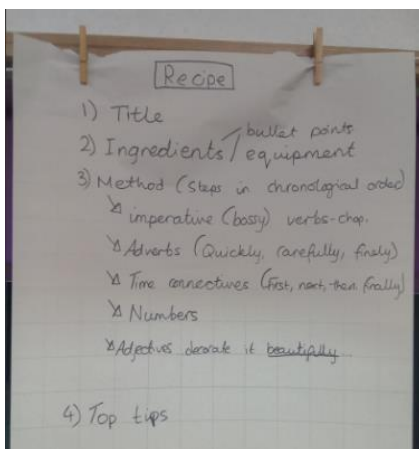 Recipe
1) Title
bullet points
2) Ingredients / equipment
3) Method (Steps in chronological order)
imperative (bossy) verbs-chop.
Adverbs (Quickly, carefully, finely)
Time connectives (first, next, then finally)
Numbers
Adjectives decorate it beautifully
4) Top tips